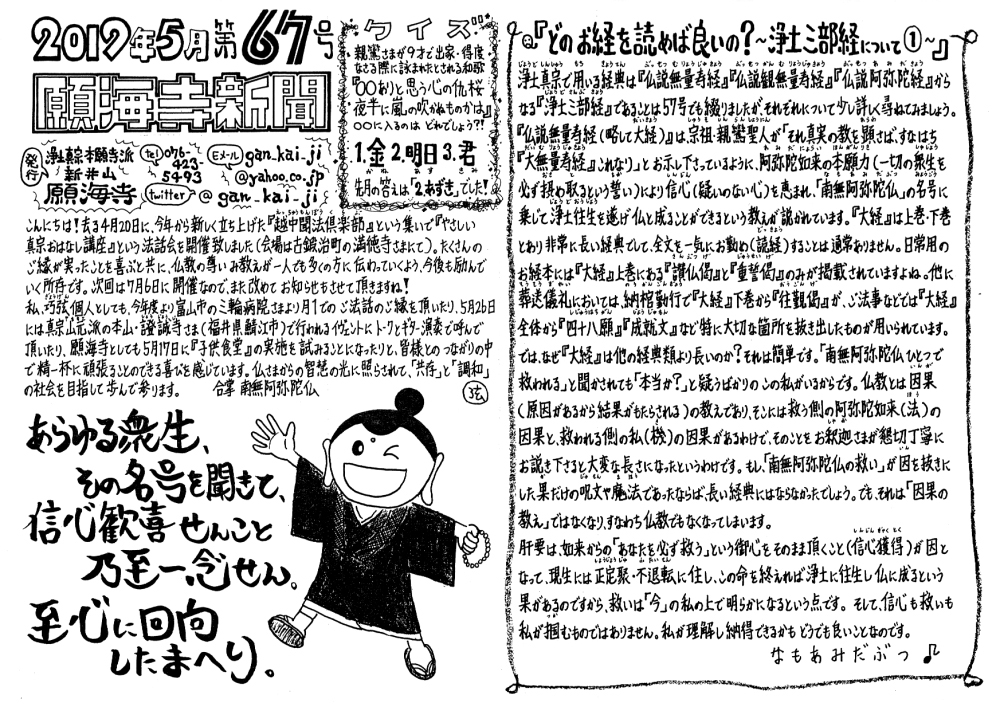 2019年5月第67号
願海寺新聞
発行
浄土真宗本願寺派
新井山
願海寺
Tel
076-
423-
5493
Eメール gan_kai_ji
@yahoo.co.jp
twitter @gan_kai_ji
クイズ
親鸞さまが9才で出家・得度
なさる際に詠まれたとされる和歌
『〇〇ありと思う心の仇桜
夜半に嵐の吹かぬものかは』
〇〇に入るのは どれでしょう?!
1.金 2.明日 3.君
先月の答えは「2.あずき」でした!
こんにちは!去る4月20日に、今年から新しく立ち上げた『越中聞法倶楽部』という集いで『やさしい
真宗おはなし講座』という法話会を開催致しました(会場は古鍛冶町の満徳寺さまにて)。たくさんの
ご縁が実ったことを喜ぶと共に、仏教の尊いみ教えが一人でも多くの方に伝わっていくよう、今後も励んで
いく所存です。次回は7月6日に開催なので、また改めてお知らせもさせて頂きますね!
私、巧弦個人としても、今年度より富山市の三輪病院さまより月1でのご法話のご縁を頂いたり、5月26日
には真宗山元派の本山・證誠寺さま(福井県鯖江市)で行われるイヴェントにトリとギター演奏で呼んで
頂いたり、願海寺としても5月17日に『子供食堂』の実施を試みることになったりと、皆様とのつながりの中
で精一杯に頑張ることのできる喜びを感じています。仏さまからの智慧の光に照らされて、「共存」と「調和」
の社会を目指して歩んで参ります。 合掌 南無阿弥陀仏
弦
あらゆる衆生、
その名号を聞きて、
信心歓喜せんこと
乃至一念せん。
至心に回向
したまへり。
『どのお経を読めば良いの?~浄土三部経について①~』
浄土真宗で用いる経典は『仏説無量寿経』『仏説観無量寿経』『仏説阿弥陀経』から
なる『浄土三部経』であることは57号でも綴りましたが、それぞれについて少し詳しく尋ねてみましょう。
『仏説無量寿経(略して大経)』は、宗祖・親鸞聖人が「それ真実の教を顕さば、すなはち
『大無量寿経』これなり」とお示し下さっているように、阿弥陀如来の本願力(一切の衆生を
必ず摂め取るという誓い)により信心(疑いのない心)を恵まれ、「南無阿弥陀仏」の名号に
乗じて浄土往生を遂げ仏と成ることができるという教えが説かれています。『大経』は上巻・下巻
とあり非常に長い経典でして、全文を一気にお勤め(読経)することは通常ありません。日常用の
お経本には『大経』上巻にある『讃仏偈』と『重誓偈』のみが掲載されていますよね。他に
葬送儀礼においては、納棺勤行で『大経』下巻から『往覲偈』が、ご法事などでは『大経』
全体から『四十八願』『成就文』など特に大切な箇所を抜き出したものが用いられています。
では、なぜ『大経』は他の経典類より長いのか?それは簡単です。「南無阿弥陀仏ひとつで
救われる」と聞かされても「本当か?」と疑うばかりのこの私がいるからです。仏教とは因果
(原因があるから結果がもたらされる)の教えであり、そこには救う側の阿弥陀如来(法)の
因果と、救われる側の私(機)の因果があるわけで、そのことをお釈迦さまが懇切丁寧に
お説き下さると大変な長さになったというわけです。もし、「南無阿弥陀仏の救い」が因を抜きに
した果だけの呪文や魔法であったならば、長い経典にはならなかったでしょう。でも、それは「因果の
教え」ではなくなり、すなわち仏教でもなくなってしまいます。
肝要は、如来からの「あなたを必ず救う」という御心をそのまま頂くこと(信心獲得)が因と
なって、現生には正定聚・不退転に住し、この命を終えれば浄土に往生し仏に成るという
果があるのですから、救いは「今」の私の上で明らかになるという点です。そして、信心も救いも
私が掴むものではありません。私が理解し納得できるかもどうでも良いことなのです。
なもあみだぶつ♪